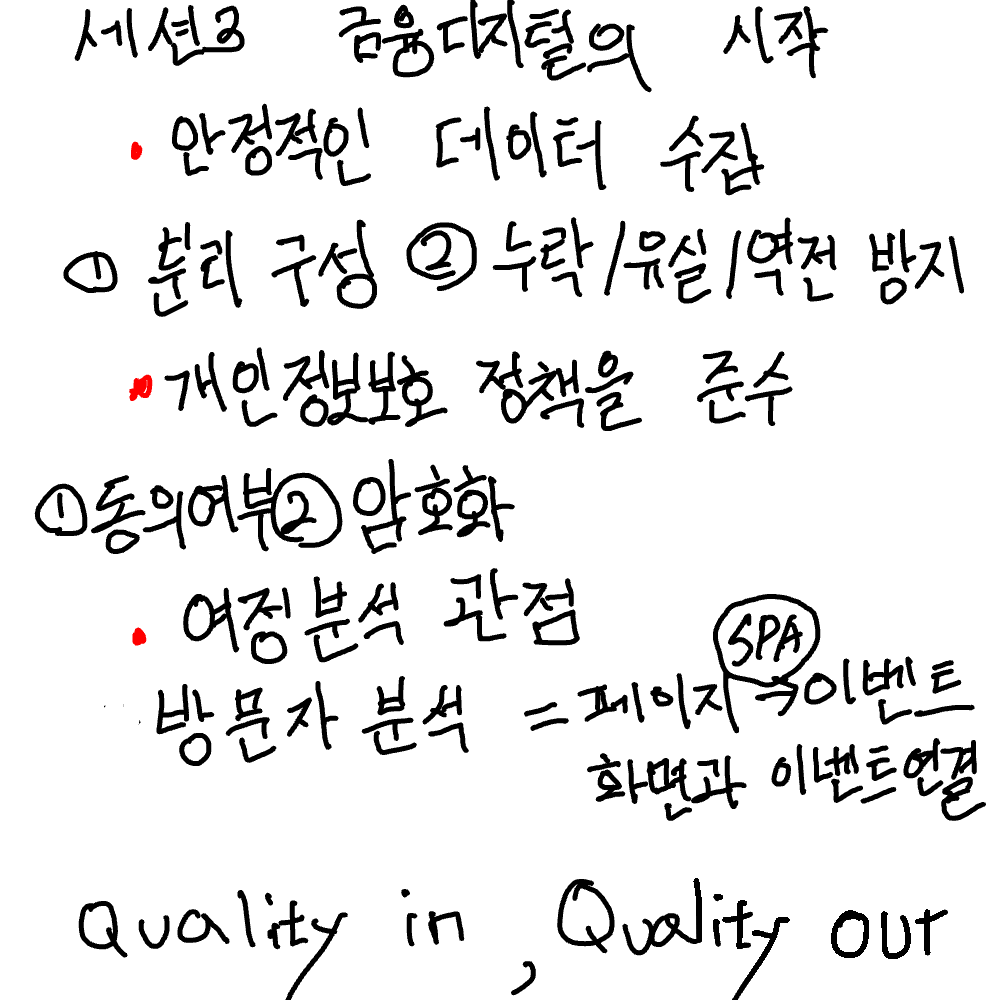 세션3 금융디지털의 시작
• 안정적인 데이터 수집
① 분리 구성 ② 누락/유실/역전 방지
• 개인정보보호 정책을 준수
①동의여부② 암호화
• 여정분석 관점
SPA
방문자 분석 = 페이지→이벤트
화면과 이벤트연결
Quality in, Quality out